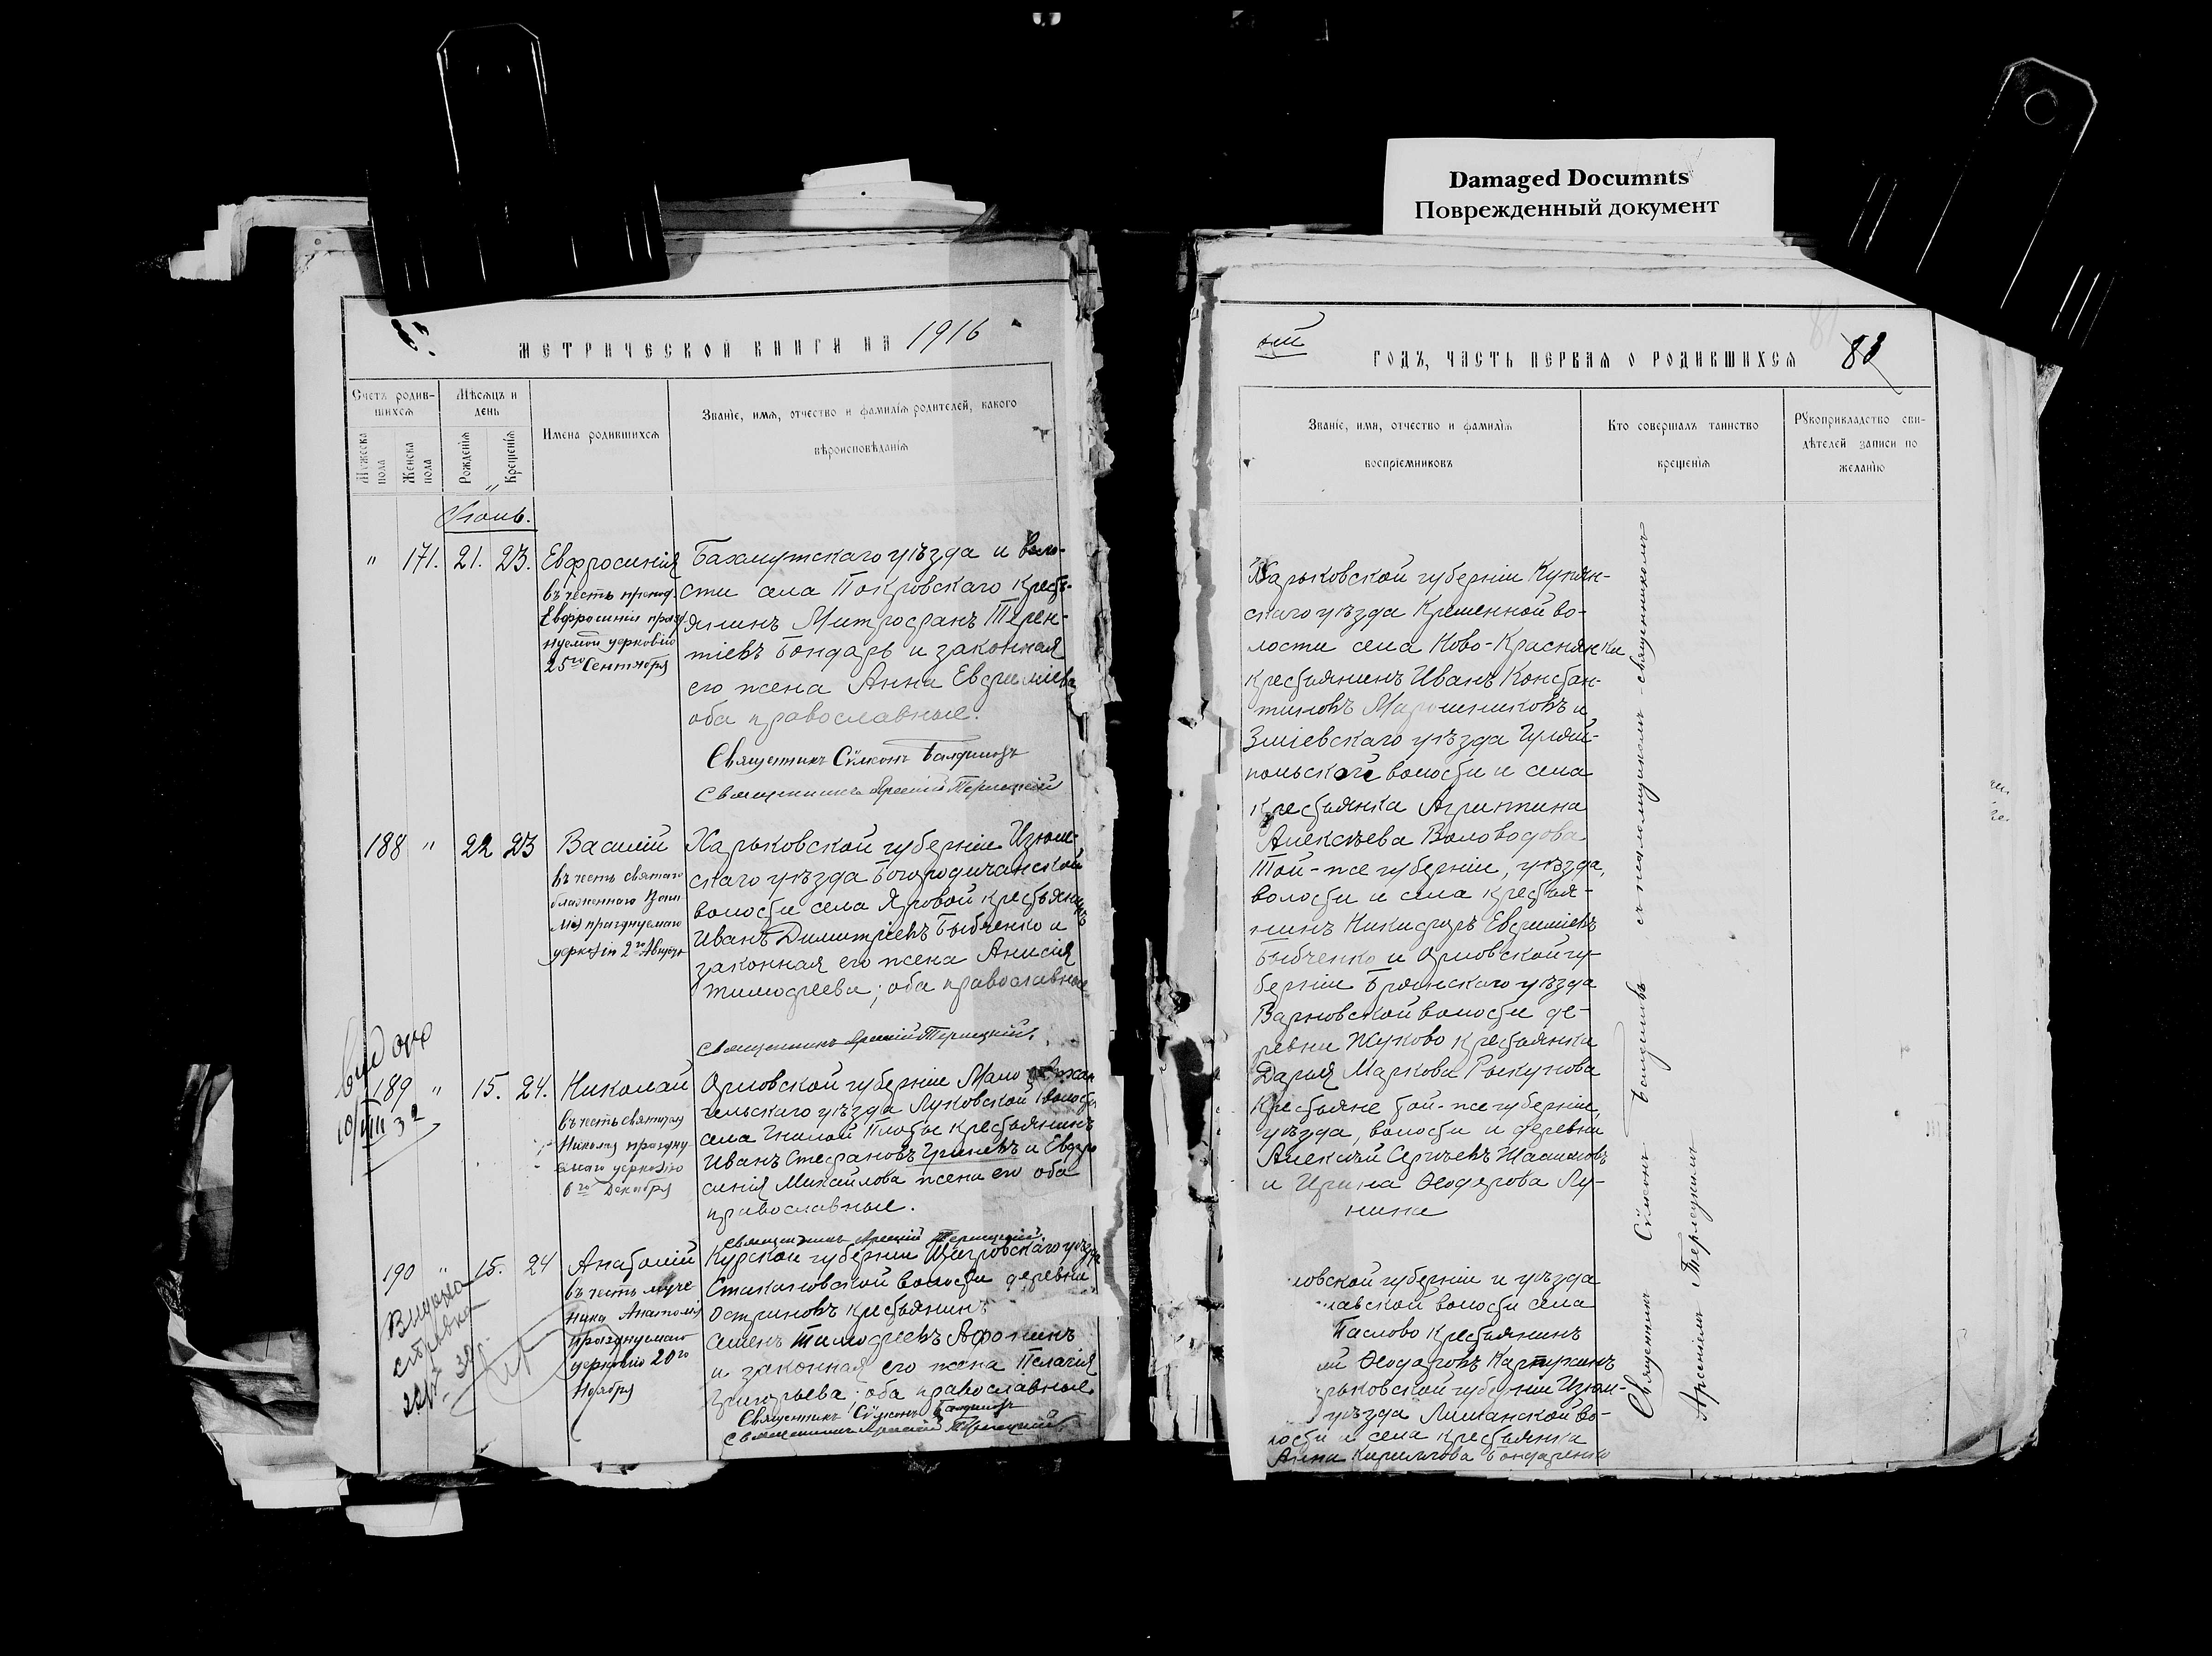 Damaged Documnts
Поврежденный документ
МЕТРИЧЕСКОЙ КНИГИ НА 1916
Счетъ родившихся
Мѣсяцъ и день
Имена родившихся
Званіе, имя, отчество и фамилія родителей, какого
вѣроисповѣданія
Мужеска пола
Женска пола
Рожденія
Крещенія
" 171. 21. 23. Евфросинія
въ честь препод.
Евфросиніи празд
нуемой церковію
25го Сентября
Бахмутскаго уѣзда и воло-
сти села Покровскаго кресть-
янинъ Митрофанъ Терен-
тіевъ Бондарь и законная
его жена Анна Евфиміева
оба православные.
Священникъ Сѵмеонъ
Священникъ Арсеній Терлецкій
188 " 22 23 Василій
въ честь святаго
блаженнаго Васи
лія празднуемаго
церковію 2го Августа
Харьковской губерніи Изюм-
скаго уѣзда Богородичанской
волости села Яровой крестьянинъ
Иванъ Димитріевъ Бибченко и
законная его жена Анисія
Тимофеева; оба православные.
Священникъ Арсеній Терлецкій.
189 " 15. 24. Николай
въ честь святаго
Николая праздну
емаго церковію
6го Декабря
Орловской губерніи Мало Архан
гельскаго уѣзда Луковской волости
села Гнилой Плоты крестьянинъ
Иванъ Стефановъ Гриневъ и Евфро
синія Михайлова жена его оба
православные.
Священникъ Арсеній Терлецкій.
190 " 15. 24 Анатолій
въ честь муче
ника Анатолія
празднуемаго
церковію 20го
Ноября
Курской губерніи Щигровскаго уѣзда
Стакановской волости деревни
крестьянинъ
Семенъ Тимофеевъ Афонинъ
и законная его жена Пелагія
Григорьева; оба православные.
Священникъ Сѵмеонъ
Священникъ Арсеній Терлецкій
ый
ГОДЪ, ЧАСТЬ ПЕРВАЯ О РОДИВШИХСЯ
Званіе, имя, отчество и фамилія
воспріемниковъ
Кто совершалъ таинство
крещенія
Рукоприкладство сви-
дѣтелей записи по
желанію
Харьковской губерніи Купян-
скаго уѣзда Кременной во-
лости села Ново-Краснянки
крестьянинъ Иванъ Констан-
тиновъ и
Зміевскаго уѣзда Гуляй-
польской волости и села
крестьянка Агрипина
Алексѣева Воловодова
Той-же губерніи, уѣзда,
волости и села крестья-
нинъ Никифоръ Евфиміевъ
Бибченко и Орловской гу-
берніи Брянскаго уѣзда
волости де-
ревни Жуково крестьянка
Дарья Маркова Рыкунова
Крестьяне той-же губерніи,
уѣзда, волости и деревни
Алексѣй Сергѣевъ
и Ирина Ѳеодорова Лу-
нина
ловской губерніи и уѣзда
лавской волости села
Паслово крестьянинъ
Ѳеодоровъ
рьковской губерніи Изюм-
уѣзда Лиманской во-
лости и села крестьянка
Анна Кириллова Бондаренко
Священникъ Сѵмеонъ съ псаломщикомъ-священникомъ
Арсеніемъ Терлецкимъ